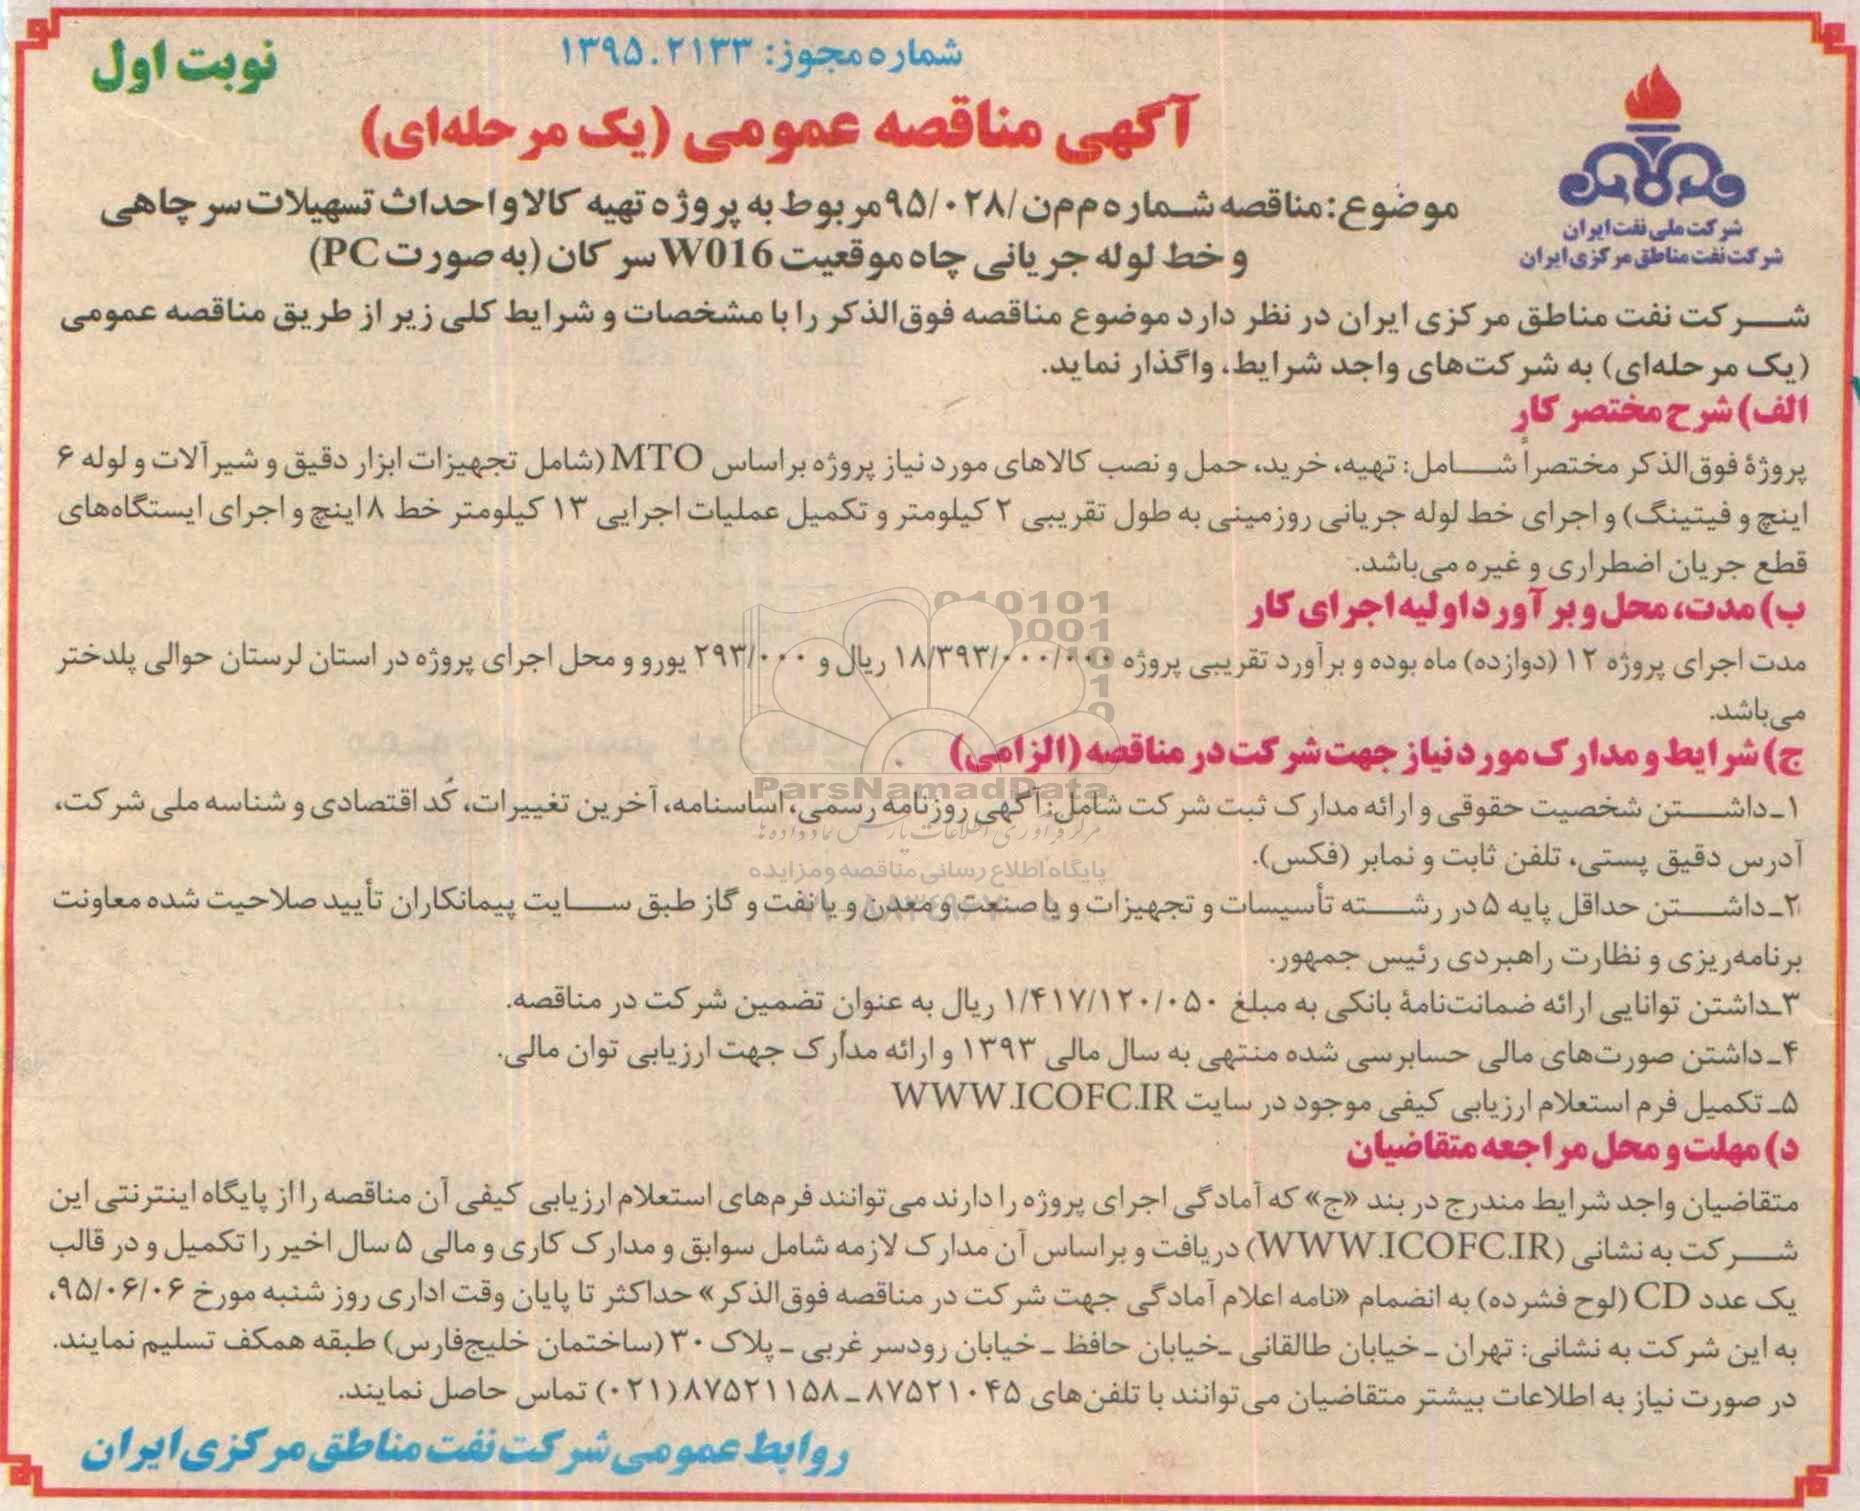 شماره مجوز: ۱۳۹۵.۲۱۳۳
نوبت اول
آگهی مناقصه عمومی (یک مرحله‌ای)
شرکت ملی نفت ایران
شرکت نفت مناطق مرکزی ایران
موضوع: مناقصه شماره م‌م‌ن/۹۵/۰۲۸ مربوط به پروژه تهیه کالا و احداث تسهیلات سر چاهی
و خط لوله جریانی چاه موقعیت W016 سرکان (به صورت PC)
شرکت نفت مناطق مرکزی ایران در نظر دارد موضوع مناقصه فوق‌الذکر را با مشخصات و شرایط کلی زیر از طریق مناقصه عمومی
(یک مرحله‌ای) به شرکت‌های واجد شرایط، واگذار نماید.
الف) شرح مختصر کار
پروژهٔ فوق‌الذکر مختصراً شامل: تهیه، خرید، حمل و نصب کالاهای مورد نیاز پروژه براساس MTO (شامل تجهیزات ابزار دقیق و شیرآلات و لوله ۶
اینچ و فیتینگ) و اجرای خط لوله جریانی روزمینی به طول تقریبی ۲ کیلومتر و تکمیل عملیات اجرایی ۱۳ کیلومتر خط ۸ اینچ و اجرای ایستگاه‌های
قطع جریان اضطراری و غیره می‌باشد.
ب) مدت، محل و برآورد اولیه اجرای کار
مدت اجرای پروژه ۱۲ (دوازده) ماه بوده و برآورد تقریبی پروژه ۱۸/۳۹۳/۰۰۰/۰۰۰ ریال و ۲۹۳/۰۰۰ یورو و محل اجرای پروژه در استان لرستان حوالی پلدختر
می‌باشد.
ج) شرایط و مدارک مورد نیاز جهت شرکت در مناقصه (الزامی)
۱ـ داشتن شخصیت حقوقی و ارائه مدارک ثبت شرکت شامل: آگهی روزنامه رسمی، اساسنامه، آخرین تغییرات، کُد اقتصادی و شناسه ملی شرکت،
آدرس دقیق پستی، تلفن ثابت و نمابر (فکس).
۲ـ داشتن حداقل پایه ۵ در رشته تأسیسات و تجهیزات و یا صنعت و معدن و یا نفت و گاز طبق سایت پیمانکاران تأیید صلاحیت شده معاونت
برنامه‌ریزی و نظارت راهبردی رئیس جمهور.
۳ـ داشتن توانایی ارائه ضمانت‌نامهٔ بانکی به مبلغ ۱/۴۱۷/۱۲۰/۰۵۰ ریال به عنوان تضمین شرکت در مناقصه.
۴ـ داشتن صورت‌های مالی حسابرسی شده منتهی به سال مالی ۱۳۹۳ و ارائه مدارک جهت ارزیابی توان مالی.
۵ـ تکمیل فرم استعلام ارزیابی کیفی موجود در سایت WWW.ICOFC.IR
د) مهلت و محل مراجعه متقاضیان
متقاضیان واجد شرایط مندرج در بند «ج» که آمادگی اجرای پروژه را دارند می‌توانند فرم‌های استعلام ارزیابی کیفی آن مناقصه را از پایگاه اینترنتی این
شرکت به نشانی (WWW.ICOFC.IR) دریافت و براساس آن مدارک لازمه شامل سوابق و مدارک کاری و مالی ۵ سال اخیر را تکمیل و در قالب
یک عدد CD (لوح فشرده) به انضمام «نامه اعلام آمادگی جهت شرکت در مناقصه فوق‌الذکر» حداکثر تا پایان وقت اداری روز شنبه مورخ ۹۵/۰۶/۰۶،
به این شرکت به نشانی: تهران ـ خیابان طالقانی ـ خیابان حافظ ـ خیابان رودسر غربی ـ پلاک ۳۰ (ساختمان خلیج‌فارس) طبقه همکف تسلیم نمایند.
در صورت نیاز به اطلاعات بیشتر متقاضیان می‌توانند با تلفن‌های ۸۷۵۲۱۰۴۵ ـ ۸۷۵۲۱۱۵۸ (۰۲۱) تماس حاصل نمایند.
روابط عمومی شرکت نفت مناطق مرکزی ایران
ParsNamadData
مرکز فرآوری اطلاعات پارس نماد داده‌ها
پایگاه اطلاع رسانی مناقصه و مزایده